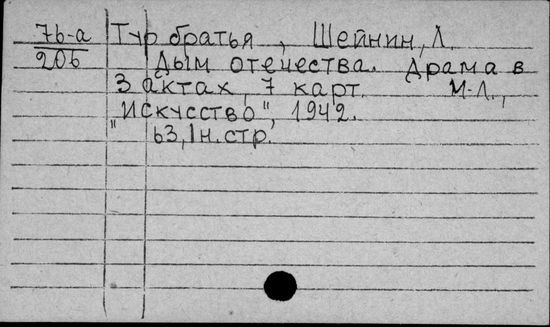 7б-а Тур братья, Шейнин, Л.
206 Дым отечества. Драма в
3 актах, 7 карт. М-Л.,
"Искусство", 1942.
" 63, 1н.стр.